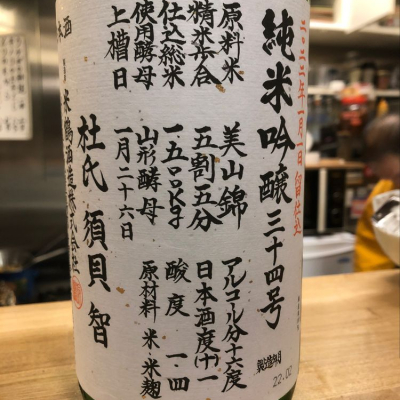 二〇二二年一月一日 留仕込
純米吟醸 三十四号
原料米 美山錦
精米歩合 五割五分
仕込総米 一五〇〇kg
使用酵母 山形酵母
上槽日 一月二十六日
アルコール分十六度
日本酒度(十)一
酸度 一.四
原材料 米・米麹
杜氏 須貝 智
米鶴酒造株式会社
本酒
製造年月
22.02